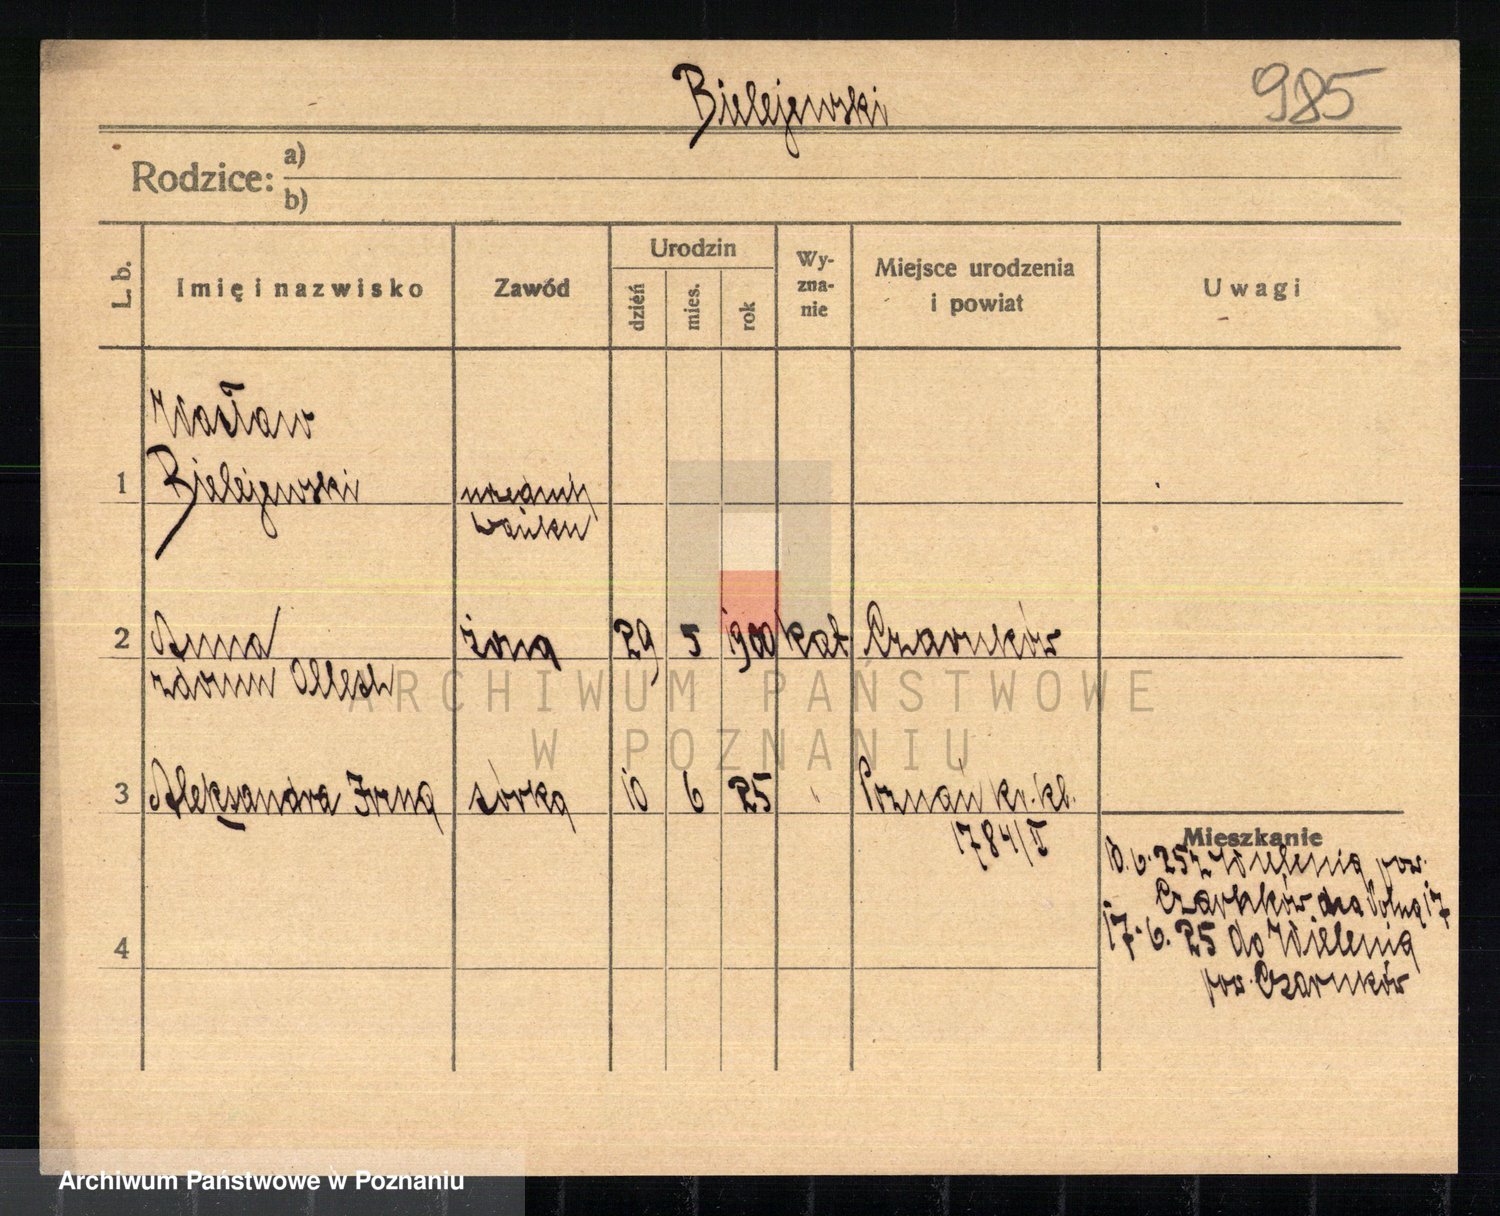 Bielejewski
985
Rodzice: a)
b)
L. b.
Imię i nazwisko
Zawód
Urodzin
dzień
mies.
rok
Wy-
zna-
nie
Miejsce urodzenia
i powiat
Uwagi
Wacław
1 Bielejewski urzędnik
banku
2 Anna żona 29 5 1900 kat Czarnków
3 Aleksandra Irena córka 10 6 25 Poznań
1784/II
Mieszkanie
25 z Wielenia pow.
Czarnków
17.6.25 do Wielenia
pow. Czarnków
4
ARCHIWUM PAŃSTWOWE
W POZNANIU
Archiwum Państwowe w Poznaniu